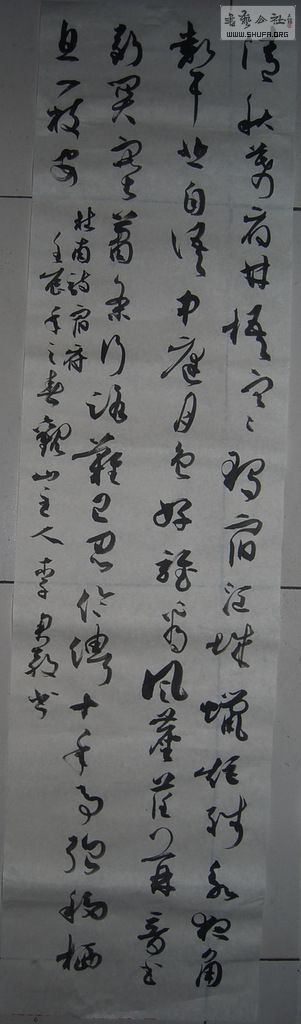 清秋幕府井梧寒独宿江城蠟炬残永夜角
声悲自语中庭月色好谁看风尘荏苒音书
断关塞萧条行路难已忍伶俜十年事强移栖
息一枝安
杜甫诗宿府
壬辰年之春觀山主人李
WWW.SHUFA.ORG